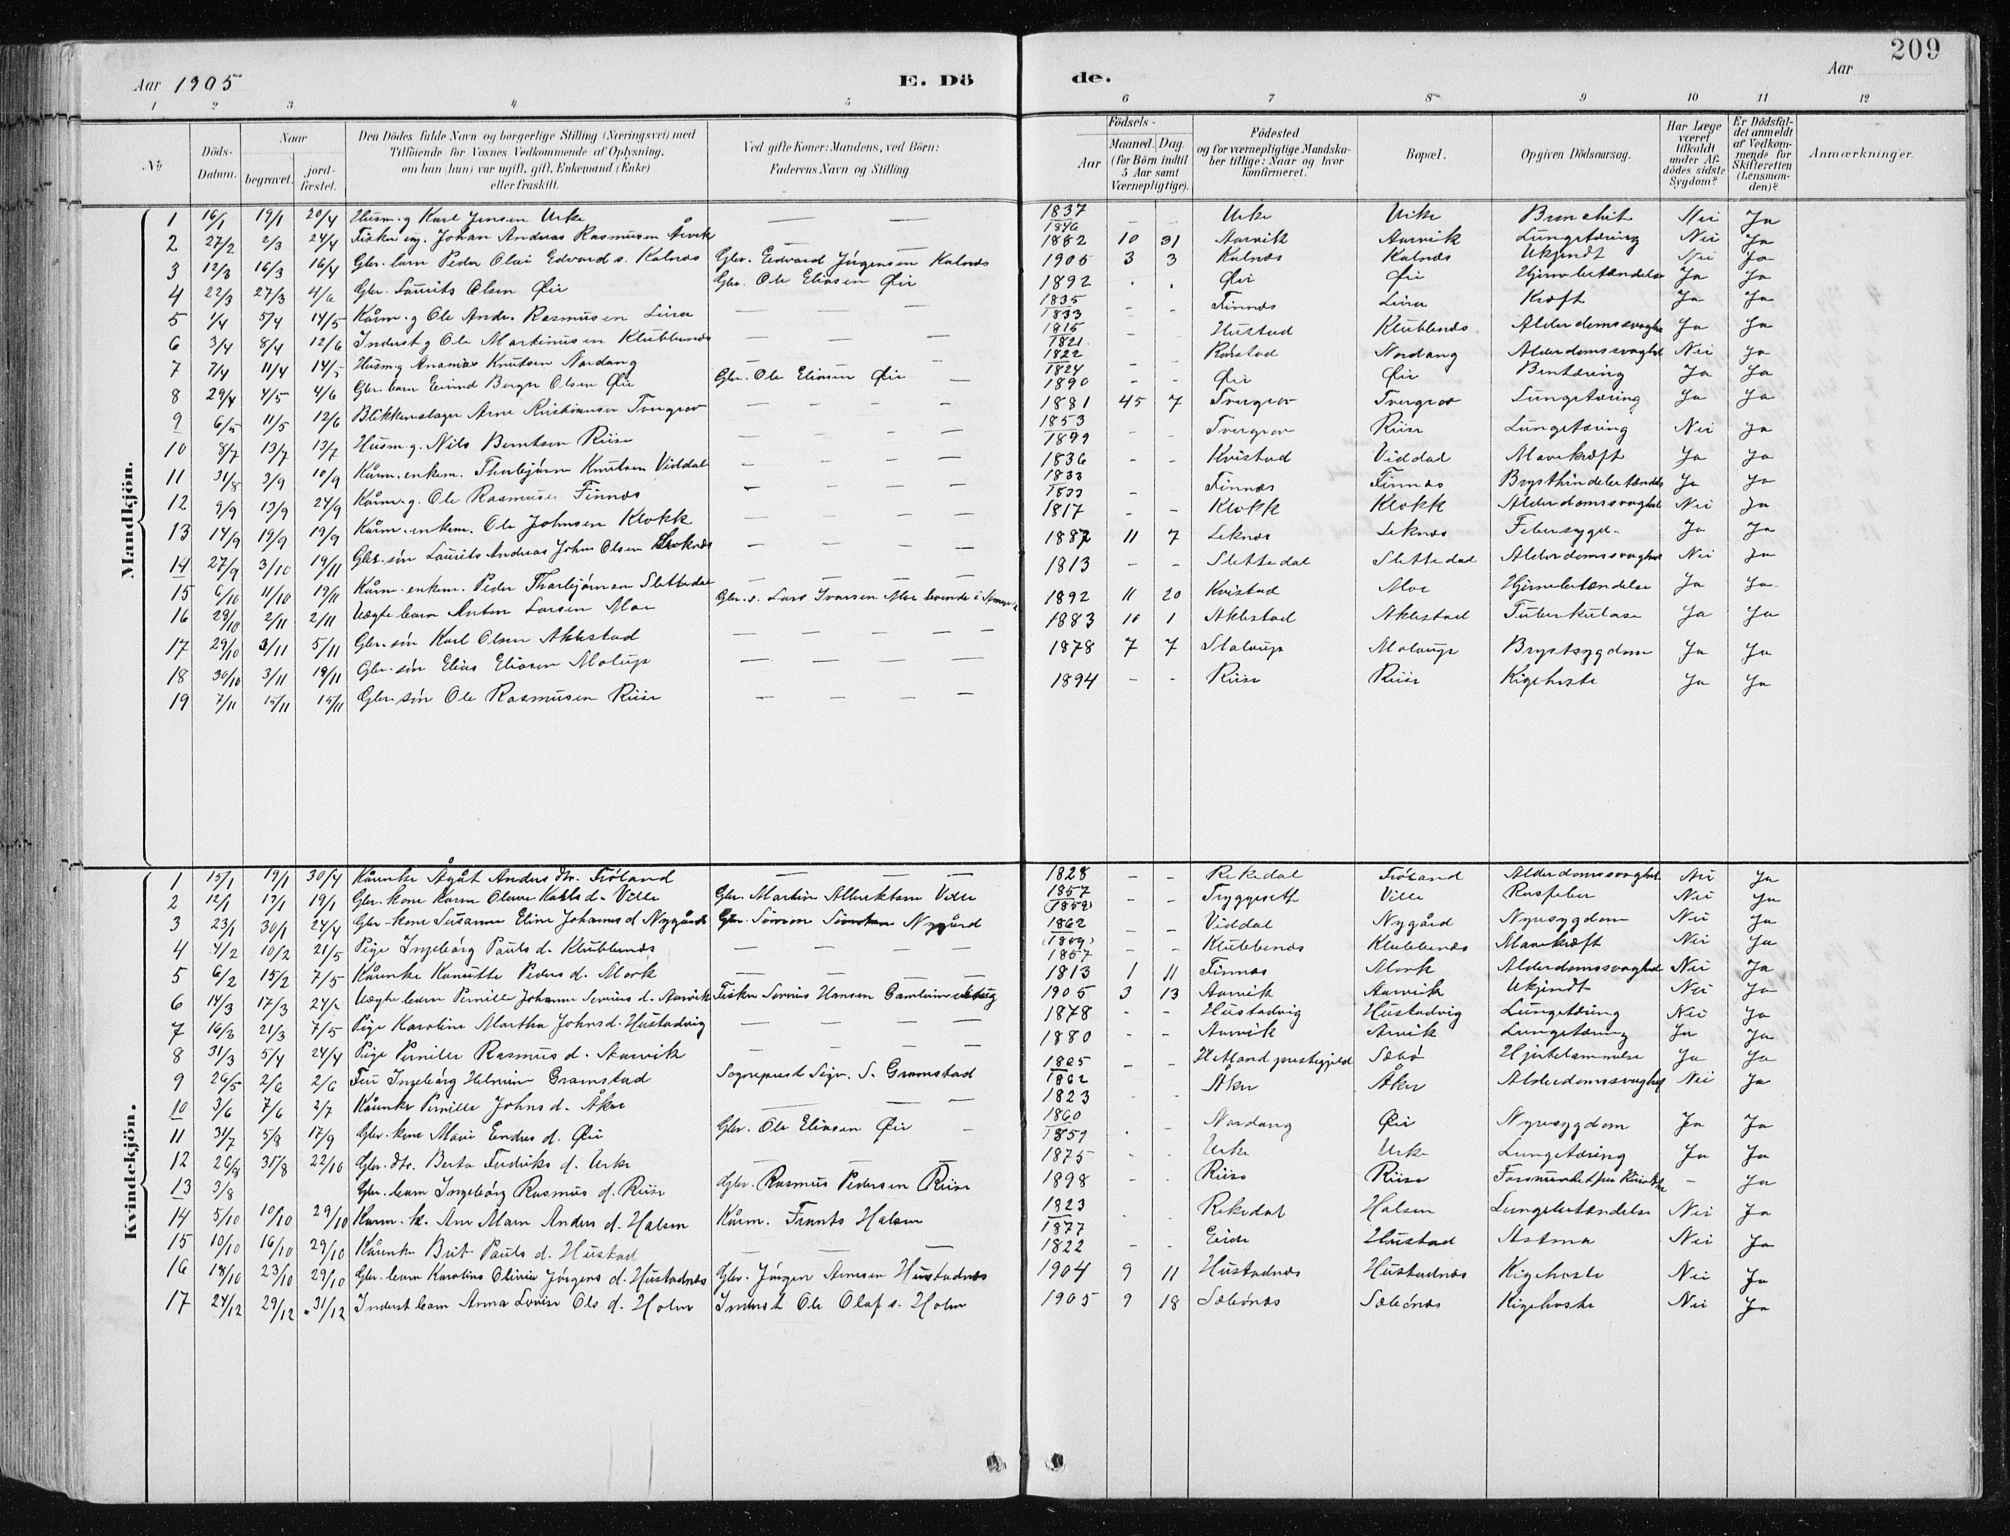 209
Aar 1905 E. Dö de. Aar
1 2 3 4 5 6 7 8 9 10 11 12
No. Döds-Datum. Naar begravet. jord-fæstet. Den Dödes fulde Navn og borgerlige Stilling (Næringsvei) med Tilföiende for Voxnes Vedkommende af Oplysning, om han (hun) var ugift, gift, Enkemand (Enke) eller fraskilt. Ved gifte Koner: Mandens, ved Börn: Faderens Navn og Stilling Födsels- Aar Maaned. Dag. (for Börn indtil 5 Aar samt Værnepligtige). Födested og for værnepligtige Mandskaber tillige: Naar og hvor konfirmeret. Bopæl. Opgiven Dödsaarsag. Har Læge været tilkaldt under Afdödes sidste Sygdom? Er Dödsfaldet anmeldt af Vedkommende for Skifteretten (Lensmanden)? Anmærkninger.
Mandkjön.
1 16/1 19/1 20/4 Husm. g Karl Jensen Urke — — — 1837 1846 - - Urke Urke Bronchit Nei Ja
2 27/2 2/3 24/4 Fisker ug. Johan Andreas Rasmusen Aarvik — 1882 10 31 Aarvik Aarvik Lungetæring Nei Ja
3 12/3 16/3 16/4 Gbr. barn Peder Olai Edvards. Kalnæs Gbr. Edvard Jörgensen Kalnæs 1905 3 3 Kalnæs Kalnæs Ukjendt Nei Ja
4 22/3 27/3 4/6 Gbr. Laurits Olsen Øie Gbr. Ole Eliasen Øie 1892 . . Øie Øie Hjernebetændelse Ja Ja
5 1/4 5/4 14/5 Kårm. g Ole Andr. Rasmusen Lira — — — 1835 1833 - - Finnæs Lira Kræft Ja Ja
6 3/4 8/4 12/6 Inderst g Ole Martinusen Klubbenæs — — — 1815 1821 - - Hustad Klubbenæs Alderdomssvaghed Ja Ja
7 7/4 11/4 14/5 Husm. g Ananias Knutsen Nordang — — — 1822 1824 - - Nordang Alderdomssvaghed Nei Ja
8 29/4 4/5 4/6 Gbr. barn Eivind Berger Olsen Øie Gbr. Ole Eliasen Øie — 1890 - - Øie Øie Bentæring Ja Ja
9 6/5 11/5 12/6 Blikkenslager Arne Kristiansen Tvergrov — — — — 1881 7 Tvergrov Tvergrov Lungetæring Ja Ja
10 8/7 13/7 13/7 Husm. g. Nils Berntsen Riise — — — — 1853 1899 - - Tvergrov Riise Lungetæring Nei Ja
11 31/8 3/9 10/9 Kårm. enkem. Thorbjörn Knutsen Viddal — — — — 1836 - - Kvistad Viddal Mavekræft Ja Ja
12 9/9 13/9 24/9 Kårm. g. Ole Rasmusen Finnæs — — — — 1833 1833 - - Finnæs Finnæs Brysthindebetændelse Ja Ja
13 14/9 19/9 19/9 Kårm. enkem. Ole Johnsen Klokk — — — — 1817 - - Klokk Klokk Alderdomssvaghed Nei Ja
14 27/9 3/10 19/11 Gbr. søn Laurits Andreas Johan Olsen Leknæs — — — — 1887 11 7 Leknæs Leknæs Febersyge Ja Ja
15 6/10 11/10 19/11 Kårm. enkem. Peder Thorbjörnsen Slettedal — — — — 1813 - - Slettedal Slettedal Alderdomssvaghed Nei Ja
16 29/10 2/11 2/11 Uægte barn Anton Larsen Moe Gbr. s. Lars Ivarsen Moe boende i Amerika 1892 11 20 Kvistad Moe Hjernebetændelse Ja Ja
17 29/10 3/11 5/11 Gbr. søn Karl Olsen Aklestad — — — — — 1883 10 1 Aklestad Aklestad Tuberkulose Ja Ja
18 30/10 3/11 19/11 Gbr. søn Elias Eliasen Molaup — — — — 1878 7 7 Molaup Brystsygdom Ja Ja
19 7/11 15/11 15/11 Gbr. søn Ole Rasmusen Riise — — — — 1894 - - Riise Riise Kigehoste Ja Ja
Kvindekjön.
1 15/1 19/1 30/4 Kårenke Ågåt Anders dtr. Tröland — — — 1828 - - Rekedal Tröland Alderdomssvaghed Nei Ja
2 12/1 17/1 19/1 Gbr. kone Karen Oluna Karls d. Ville Gbr. Martin Albrektsen Ville 1857 (1852) - - Tryggeseth Ville Nei Ja
3 23/1 30/1 24/4 Gbr. kone Susanne Eline Johannes d Nygård Gbr. Simon Nygård 1862 - - Viddal Nygård Nyresygdom Nei Ja
4 4/2 10/2 21/5 Pige Ingeborg Pauls d. Klubbenæs — — — 1857 - - Klubbenæs Klubbenæs Mavekræft Nei Ja
5 6/2 15/2 7/5 Kårenke Kanutte Peders d. Mork — — — — 1813 1 11 Finnæs Mork Alderdomssvaghed Nei Ja
6 14/3 17/3 Uægte barn Pernille Johanne Severins d. Aarvik Fisker Severin Hansen 1905 3 13 Aarvik Aarvik Ukjendt Nei Ja
7 16/3 21/3 7/5 Pige Karoline Martha Johns d. Hustadvig — — — — 1878 - - Hustadvig Hustadvig Lungetæring Nei Ja
8 31/3 5/4 24/4 Pige Pernille Rasmus d. Aarvik — — — — 1880 - - Aarvik Arvik Lungetæring Ja Ja
9 26/5 2/6 2/6 Fru Ingeborg Helmine Gramstad Sogneprest Sigv. S. Gramstad 1865 1862 - - Hetland prestegjeld Sæbö Hjertelammelse Ja Ja
10 3/6 7/6 2/7 Kårenke Pernille Johns d. Åker — — — 1823 Åker Åker Alderdomssvaghed Nei Ja
11 31/7 5/8 17/9 Gbr. kone Marie Endres d. Øie Gbr. Ole Eliasen Øie — 1860 1859 . - Nordang Øie Nyresygdom Ja Ja
12 26/8 31/8 22/10 Gbr. dtr. Berta Fredriks d. Urke — — — 1875 - - Urke Urke Lungetæring Ja Ja
13 3/8 Gbr. barn Ingeborg Rasmus d. Riise Gbr. Rasmus Pedersen Riise 1898 - - Riise Riise - Ja
14 5/10 10/10 29/10 Kårm. k. Ane Marie Anders d. Halsen Kårm. Frants Halsen 1823 1877 . . Rekedal Halsen Lungebetændelse Nei Ja
15 10/10 16/10 29/10 Kårenke Brit Pauls d. Hustad — — — 1822 - - Eide Hustad Astma Nei Ja
16 18/10 23/10 29/10 Gbr. barn Karoline Olivie Jörgens d. Hustadnæs Gbr. Jörgen Arnesen Hustadnæs 1904 9 11 Hustadnæs Hustadnæs Kigehoste Nei Ja
17 24/12 29/12 31/12 Inderst barn Anna Lovise Ols d. Holm Inderst Ole Olaf s. Holm 1905 9 18 Sæbönæs Sæbönæs Kigehoste Nei Ja